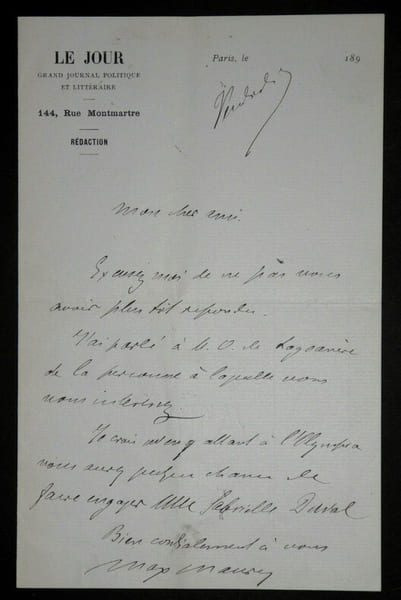 LE JOUR
GRAND JOURNAL POLITIQUE
ET LITTÉRAIRE
144, Rue Montmartre
RÉDACTION
Paris, le 189
Vendredi
Mon cher ami.
Excusez moi de ne pas vous
avoir plus tôt répondu.
J'ai parlé à M. O. de
de la personne à laquelle vous
vous intéressez.
Je crois en y allant à l'Olympia
vous aurez chance de
faire engager Mlle Gabrielle Duval
Bien cordialement à vous
Max Maurey